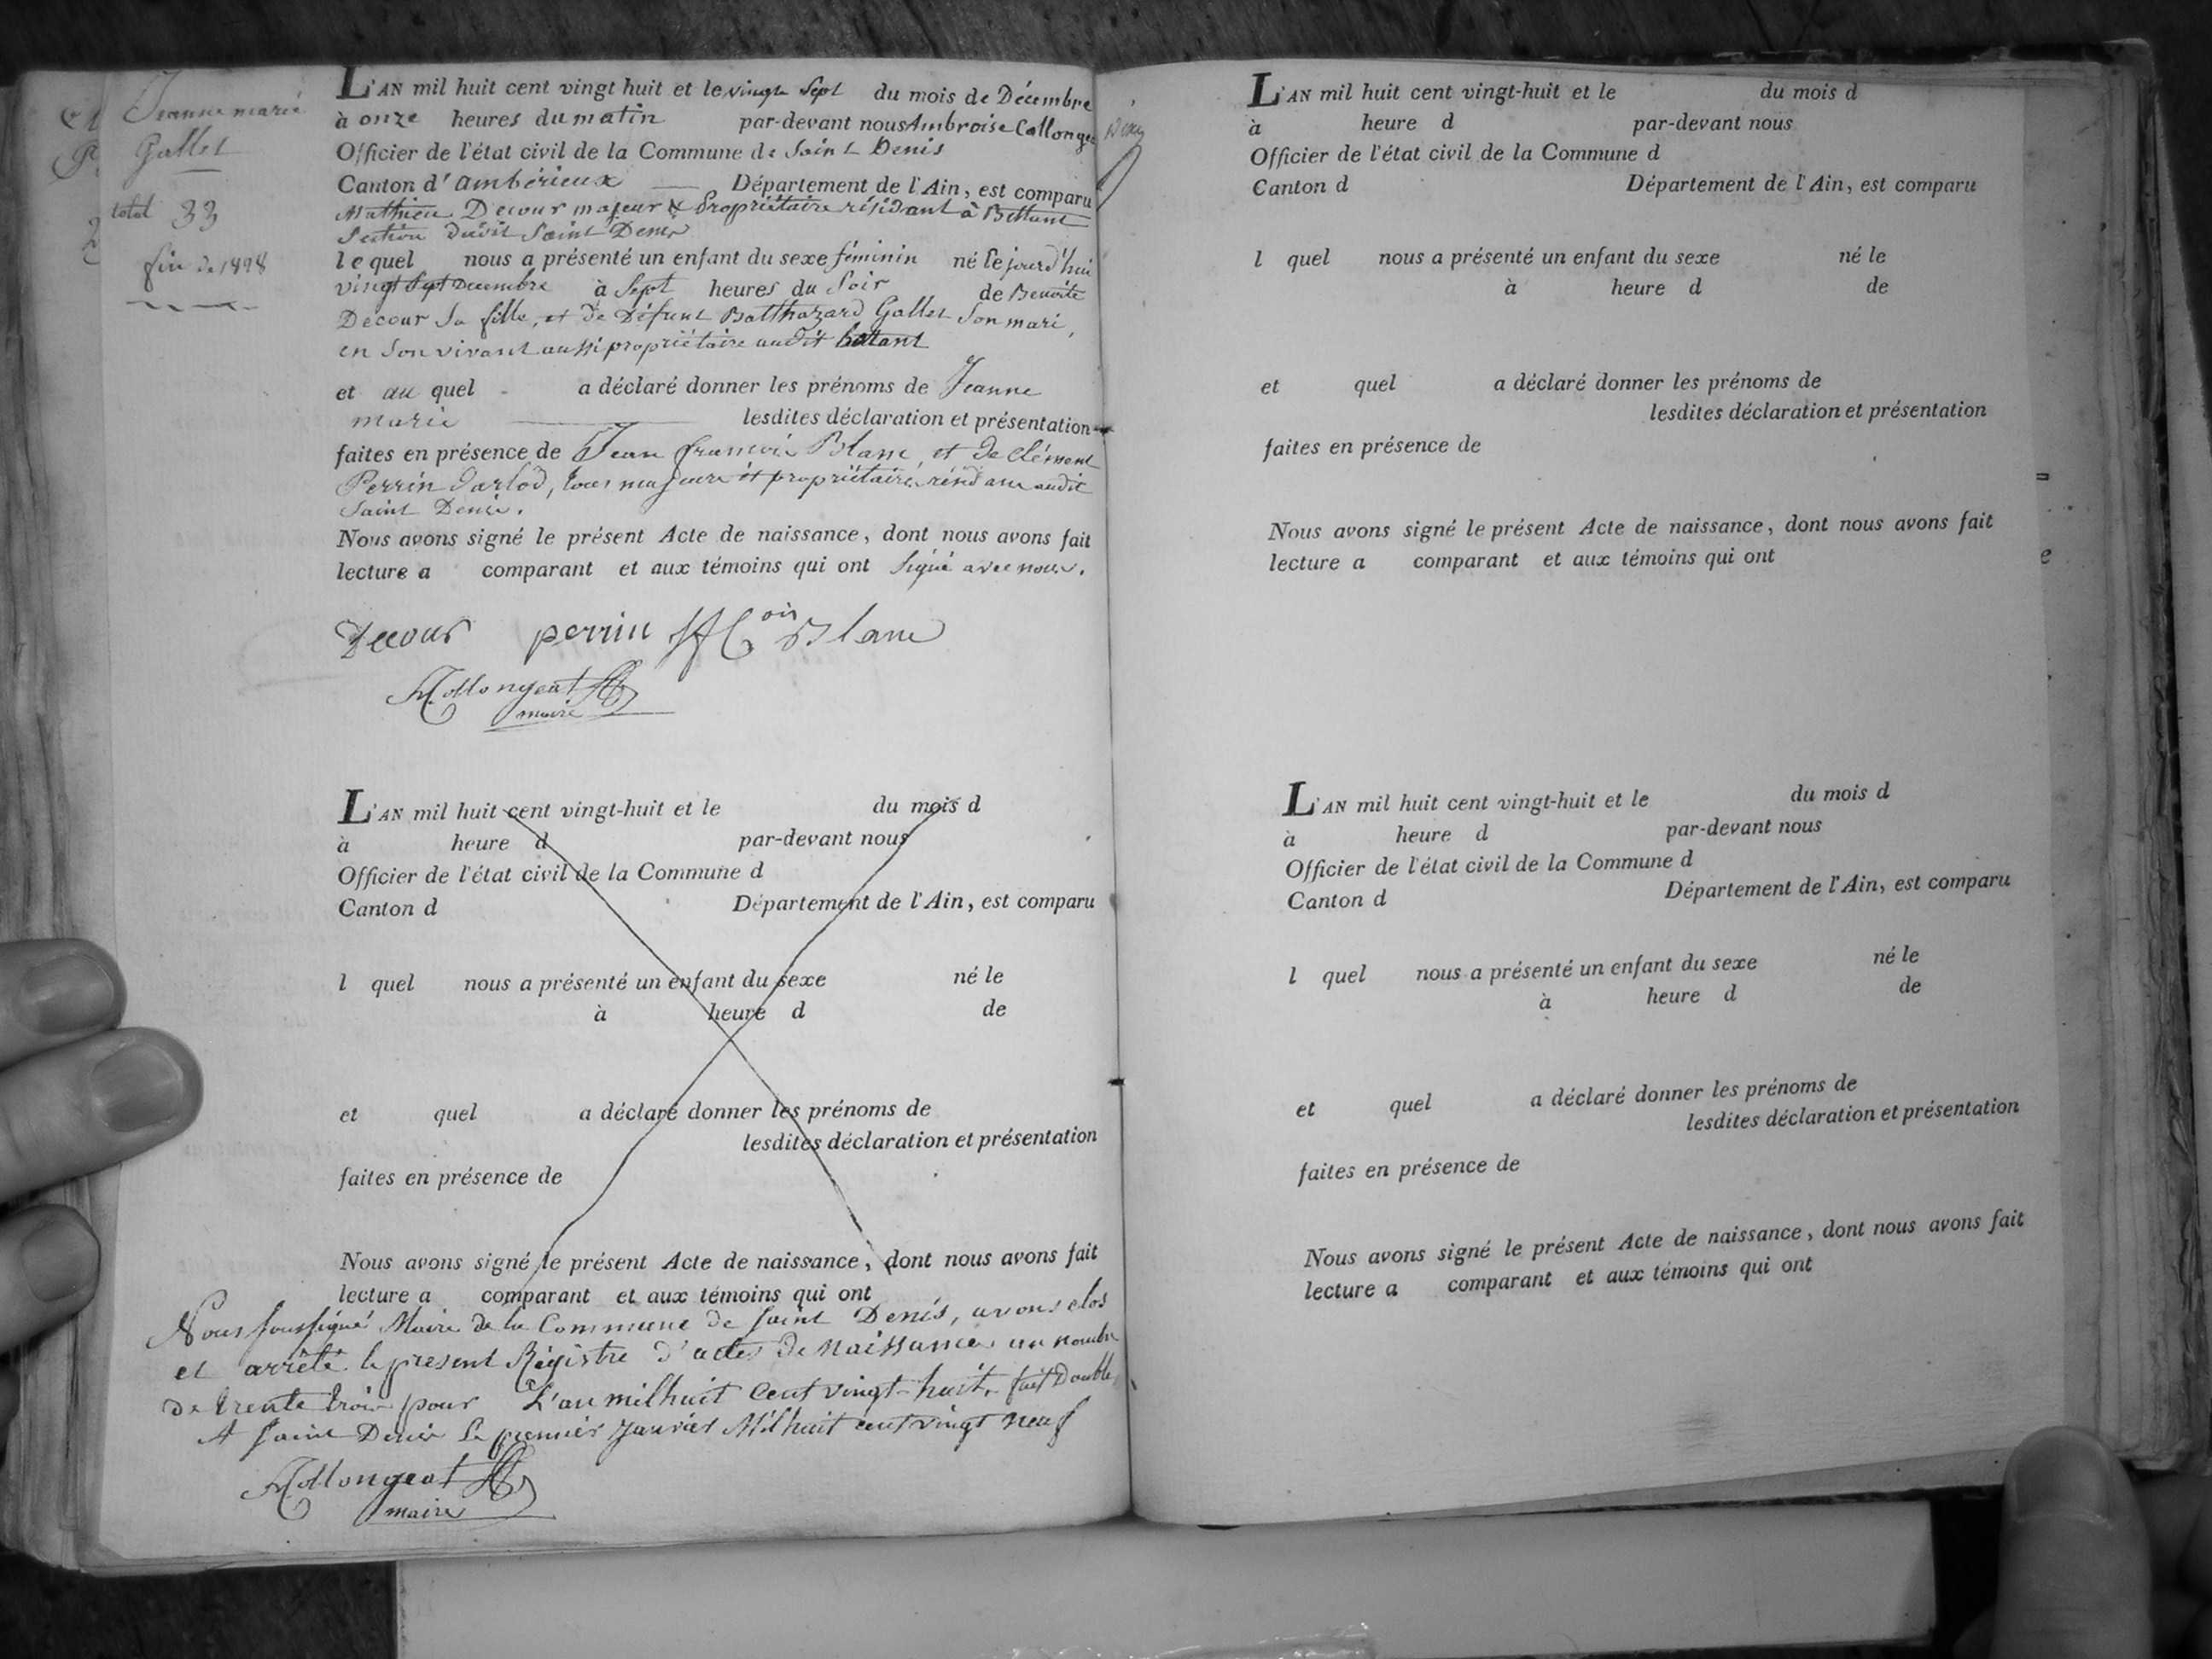 Jeanne marie
Gallet
total 33
fin de 1828
L'AN mil huit cent vingt huit et le vingt sept du mois de Décembre
à onze heures du matin par-devant nous Ambroise Collongeat
Officier de l'état civil de la Commune de Saint Denis
Canton d'ambérieux Département de l'Ain, est comparu
Mathieu Decour majeur & Propriétaire résidant à Bettant
Section dudit Saint Denis
le quel nous a présenté un enfant du sexe féminin né le jourd'hui
vingt sept Decembre à Sept heures du Soir de Benoite
Decour sa fille, et de Défunt Balthazard Gallet son mari,
en son vivant aussi propriétaire audit bettant
et au quel a déclaré donner les prénoms de Jeanne
marie lesdites déclaration et présentation
faites en présence de Jean françois Blanc, et de clément
Perrin darlod, tous majeurs et propriétaires résidant audit
Saint Denis.
Nous avons signé le présent Acte de naissance, dont nous avons fait
lecture a comparant et aux témoins qui ont signé avec nous.
Decour perrin ois Blanc
Collongeat
maire
L'AN mil huit cent vingt-huit et le du mois d
à heure d par-devant nous
Officier de l'état civil de la Commune d
Canton d Département de l'Ain, est comparu
l quel nous a présenté un enfant du sexe né le
à heure d de
et quel a déclaré donner les prénoms de
lesdites déclaration et présentation
faites en présence de
Nous avons signé le présent Acte de naissance, dont nous avons fait
lecture a comparant et aux témoins qui ont
Nous soussigné Maire de la Commune de Saint Denis, avons clos
et arrêté le present Régistre d'actes de Naissances au nombre
de trente trois pour L'an mil huit cent vingt-huit, fait Double
A Saint Denis le premier Janvier Mil huit cent vingt neuf
Collongeat
maire
L'AN mil huit cent vingt-huit et le du mois d
à heure d par-devant nous
Officier de l'état civil de la Commune d
Canton d Département de l'Ain, est comparu
l quel nous a présenté un enfant du sexe né le
à heure d de
et quel a déclaré donner les prénoms de
lesdites déclaration et présentation
faites en présence de
Nous avons signé le présent Acte de naissance, dont nous avons fait
lecture a comparant et aux témoins qui ont
L'AN mil huit cent vingt-huit et le du mois d
à heure d par-devant nous
Officier de l'état civil de la Commune d
Canton d Département de l'Ain, est comparu
l quel nous a présenté un enfant du sexe né le
à heure d de
et quel a déclaré donner les prénoms de
lesdites déclaration et présentation
faites en présence de
Nous avons signé le présent Acte de naissance, dont nous avons fait
lecture a comparant et aux témoins qui ont